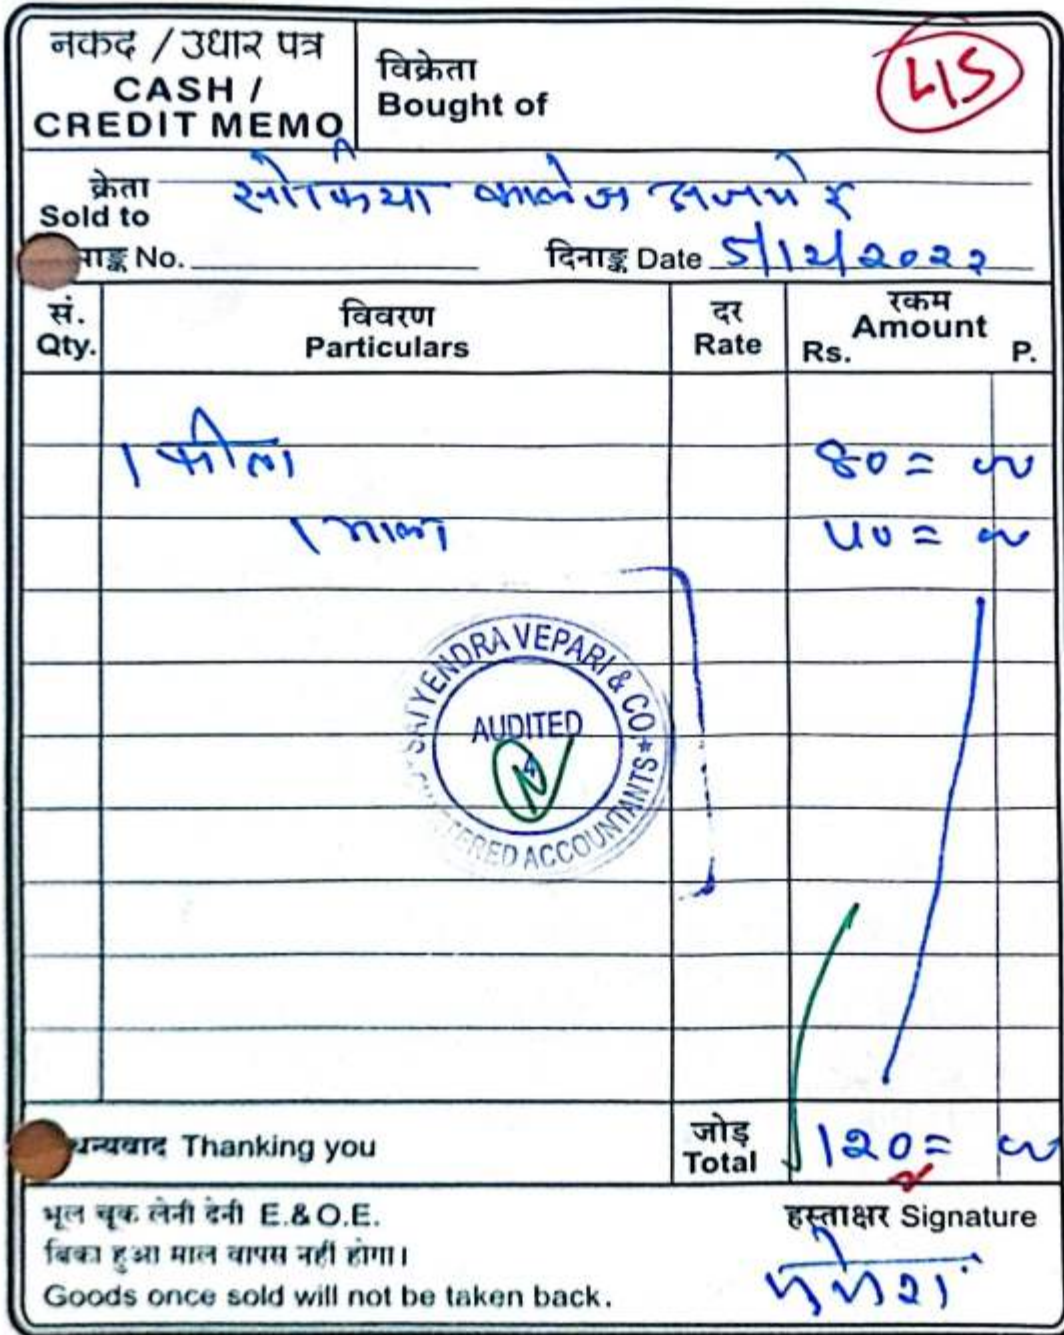 नकद / उधार पत्र
CASH /
CREDIT MEMO
विक्रेता
Bought of
क्रेता
Sold to
सोफिया कालेज अजमेर
No.
दिनाङ्क Date 5/12/2022
सं.
Qty.
विवरण
Particulars
दर
Rate
रकम
Amount
Rs. P.
1
1 माला
SATYENDRA VEPARI & CO.
AUDITED
ACCOUNTANTS
धन्यवाद Thanking you
जोड़
Total
120=00
भूल चूक लेनी देनी E.&O.E.
बिका हुआ माल वापस नहीं होगा।
Goods once sold will not be taken back.
हस्ताक्षर Signature